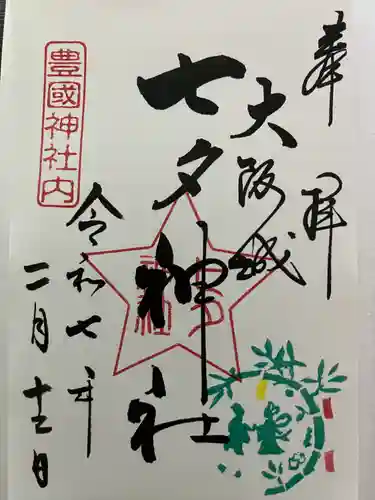 奉拝
大阪城
七夕神社
豊國神社内
令和七年
二月十三日